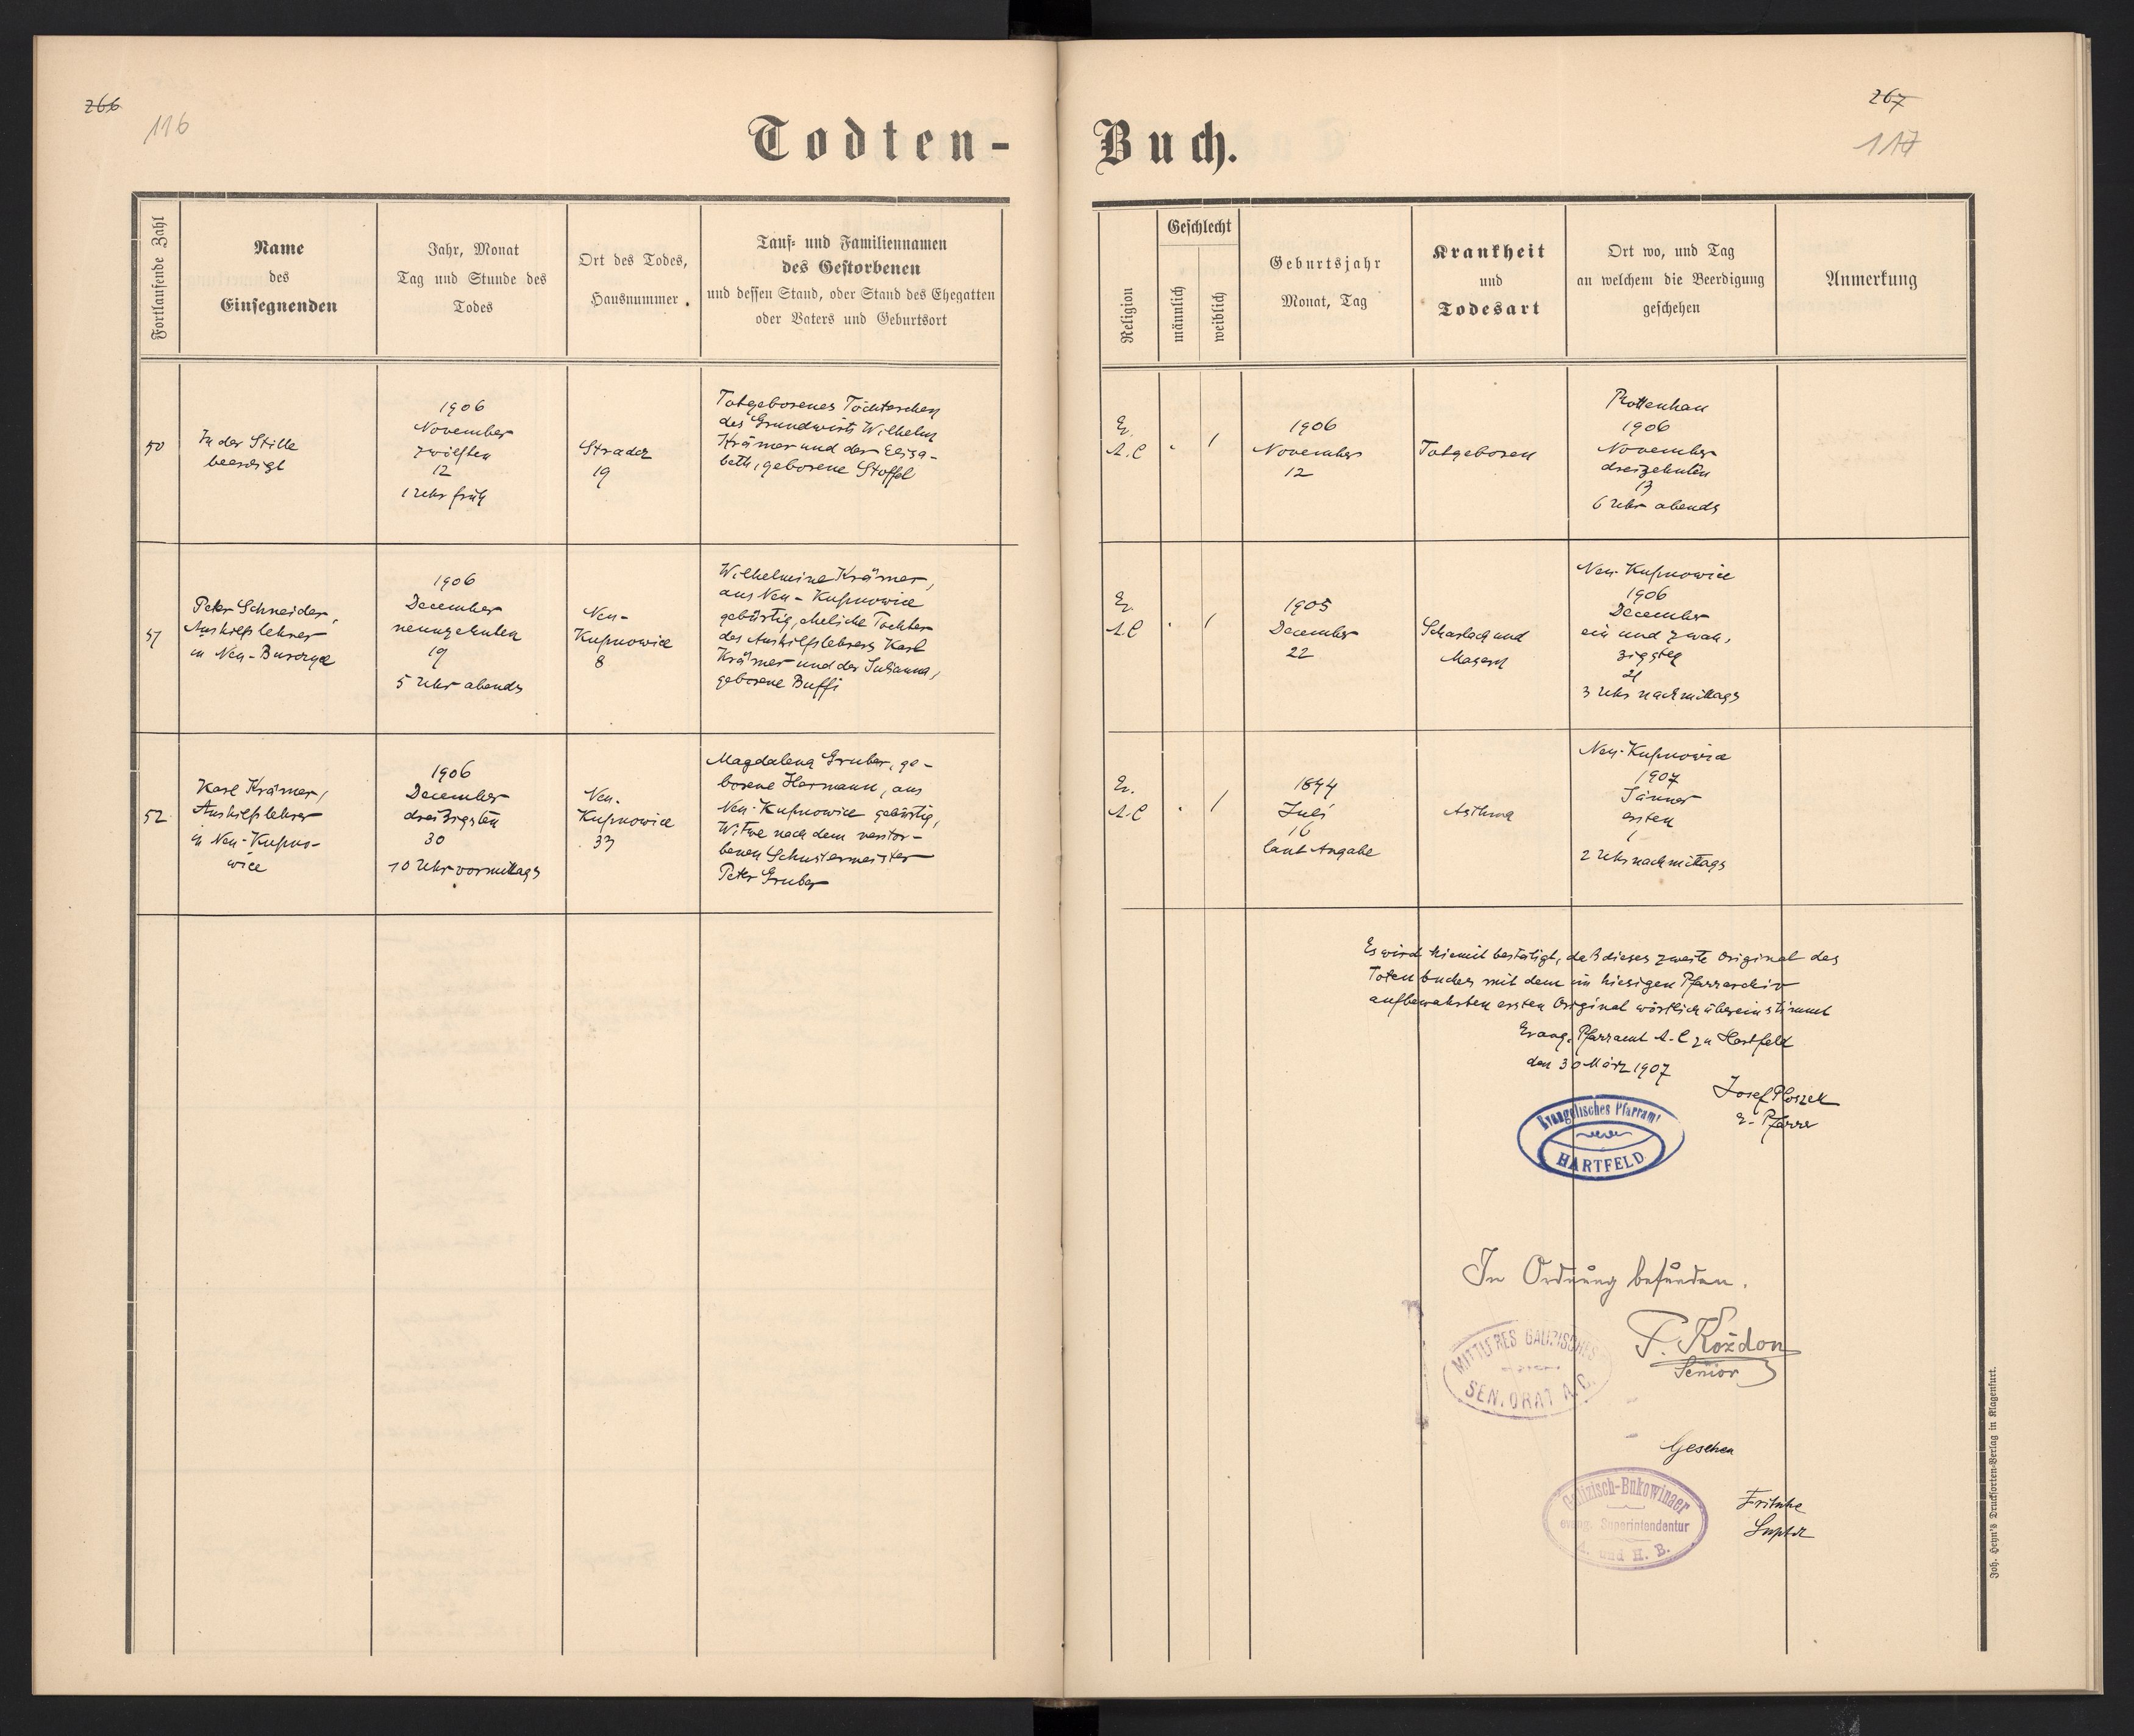 266
116
Todten-
Fortlaufende Zahl
Name
des
Einsegnenden
Jahr, Monat
Tag und Stunde des
Todes
Ort des Todes,
Hausnummer.
Tauf- und Familiennamen
des Gestorbenen
und dessen Stand, oder Stand des Ehegatten
oder Vaters und Geburtsort
50
In der Stille
beerdigt
1906
November
zwölften
12
1 Uhr früh
Stradcz
19
Totgeborenes Töchterchen
des Grundwirts Wilhelm
Krämer und der Elisa-
beth, geborene Stoffel
51
Peter Schneider,
Aushilfslehrer
in Neu-Burczyce
1906
December
neunzehnten
19
5 Uhr abends
Neu-
Kupnowice
8
Wilhelmine Krämer,
aus Neu-Kupnowice
gebürtig, eheliche Tochter
des Aushilfslehrers Karl
Krämer und der Susanna,
geborene Buffi
52
Karl Krämer,
Aushilfslehrer
in Neu-Kupno-
wice
1906
December
dreizigsten
30
10 Uhr vormittags
Neu-
Kupnowice
33
Magdalena Gruber, ge-
borene Hermann, aus
Neu-Kupnowice gebürtig,
Witwe nach dem verstor-
benen Schustermeister
Peter Gruber
267
117
Buch.
Religion
Geschlecht
männlich
weiblich
Geburtsjahr
Monat, Tag
Krankheit
und
Todesart
Ort wo, und Tag
an welchem die Beerdigung
geschehen
Anmerkung
Ev.
A.C
1
1906
November
12
Totgeboren
Rottenhan
1906
November
dreizehnten
13
6 Uhr abends
Ev.
A.C
1
1905
December
22
Scharlach und
Masern
Neu-Kupnowice
1906
December
ein und zwan,
zigsten
21
3 Uhr nachmittags
Ev.
A.C
1
1844
Juli
16
laut Angabe
Asthma
Neu-Kupnowice
1907
Jänner
ersten
1
2 Uhr nachmittags
Es wird hiemit bestätigt, daß dieses zweite Original des
Totenbuches mit dem im hiesigen Pfarrarchiv
aufbewahrten ersten Original wörtlich übereinstimmt
Evang. Pfarramt A.C zu Hartfeld
den 30 März 1907
Josef Ploszek
e. Pfarrer
Evangelisches Pfarramt
HARTFELD
In Ordnung befunden.
MITTLERES GALIZISCHES
SENIORAT A.C.
F. Koždon
Senior
Gesehen
Galizisch-Bukowinaer
evang. Superintendentur
A. und H. B.
Fritsche
Suptdt
Joh. Heyn's Drucksorten-Verlag in Klagenfurt.